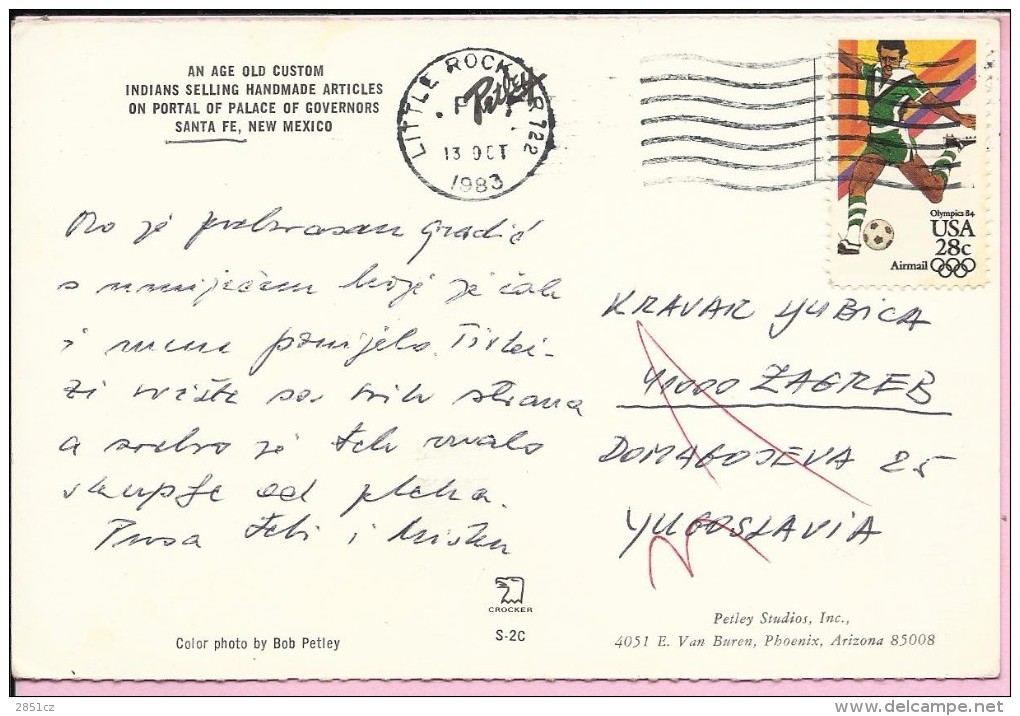 AN AGE OLD CUSTOM
INDIANS SELLING HANDMADE ARTICLES
ON PORTAL OF PALACE OF GOVERNORS
SANTA FE, NEW MEXICO
LITTLE ROCK AR 722
Petley
13 OCT
1983
Olympics 84
USA
28c
Airmail
Ovo je gradić
s koje je čak
i mene ponijelo.
sa svih strana
a srebro je
skuplje od pleha.
Pusa Tebi i
KRAVAR LJUBICA
41000 ZAGREB
DOMAGOJEVA 25
YUGOSLAVIA
CROCKER
S-2C
Color photo by Bob Petley
Petley Studios, Inc.,
4051 E. Van Buren, Phoenix, Arizona 85008
2851cz
www.delcampe.net